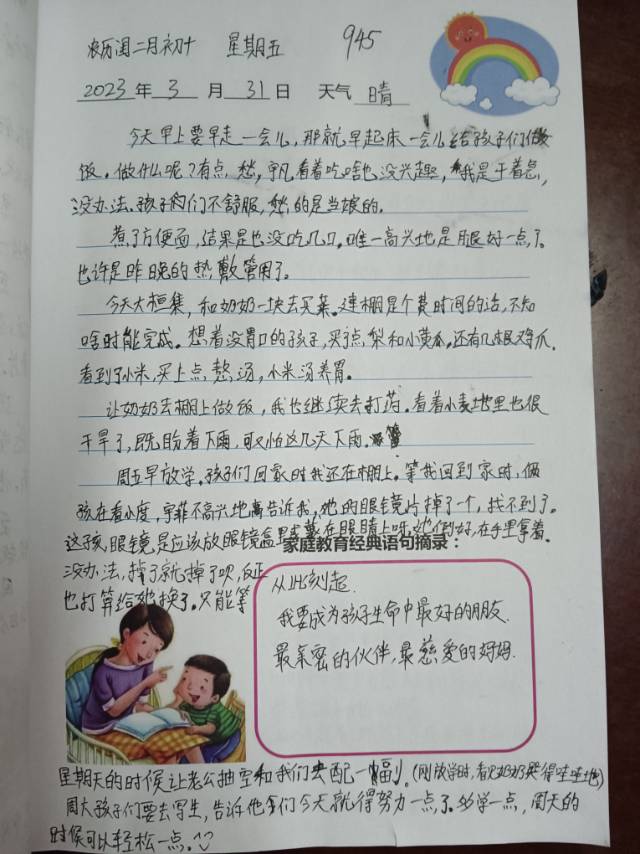 农历闰二月初十 星期五 945
2023年 3月 31日 天气 晴
今天早上要早走一会儿,那就早起床一会儿给孩子们做
饭。做什么呢?有点愁,宇凡看着吃啥也没兴趣,我是干着急,
没办法。孩子们不舒服,愁的是当娘的。
煮了方便面,结果是也没吃几口。唯一高兴地是腿好一点了。
也许是昨晚的热敷管用了。
今天大桓集,和奶奶一块去买菜。建棚是个费时间的活,不知
啥时能完成。想着没胃口的孩子,买了点梨和小黄瓜。还有几根鸡爪。
看到了小米,买上点熬汤,小米汤养胃。
让奶奶去棚上做饭,我也继续去打药。看着小麦地里也很
干旱了,既盼着下雨,可又怕这几天下雨。
周五早放学。孩子们回家时我还在棚上。等我回到家时,俩
孩在看小度,宇菲不高兴地告诉我,她的眼镜片掉了一个,找不到了。
这孩,眼镜是应该放眼镜盒里或戴在眼睛上呀。她倒好,在手里拿着。
家庭教育经典语句摘录:
没办法,掉了就掉了呗,反正
也打算给她换了。只能等
从此刻起
我要成为孩子生命中最好的朋友.
最亲密的伙伴,最慈爱的妈妈.
星期天的时候让老公抽空和我们去配一幅。(刚放学时,看见奶奶哭得哇哇地)
周六孩子们要去写生,告诉他们今天就得努力一点了。多学一点,周天的
时候可以轻松一点。